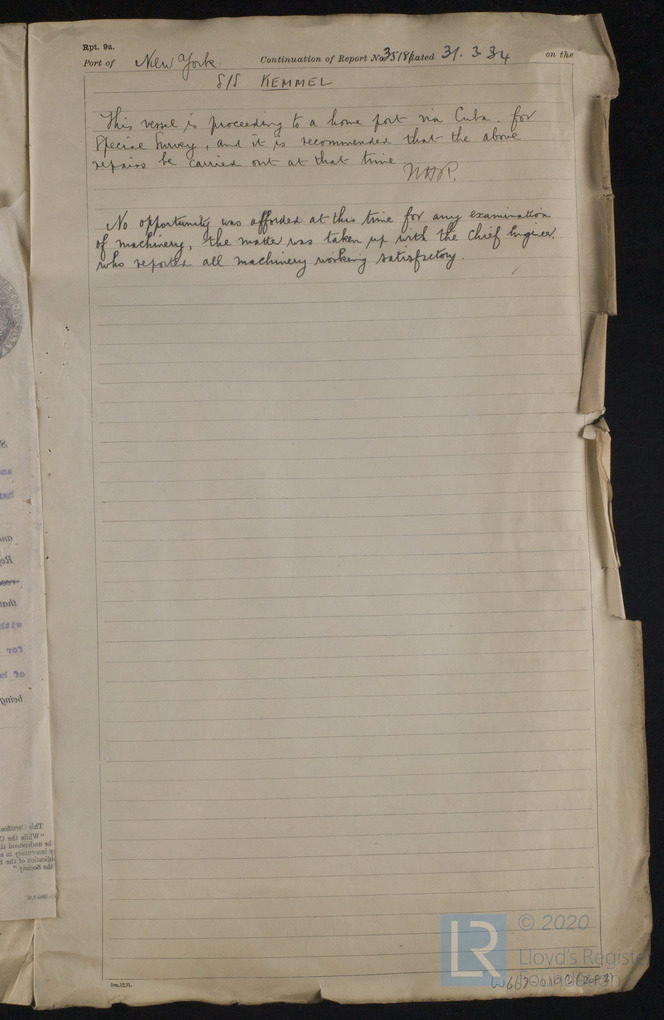 Rpt. 9a.
Port of New York. Continuation of Report No. dated 31. 3. 34 on the
S/S KEMMEL
This vessel is proceeding to a home port via Cuba. for
Special Survey, and it is recommended that the above
repairs be carried out at that time
No opportunity was afforded at this time for any examination
of machinery, the matter was taken up with the Chief Engineer.
who reported all machinery working satisfactory.
© 2020
LR
Lloyd's Register
Foundation